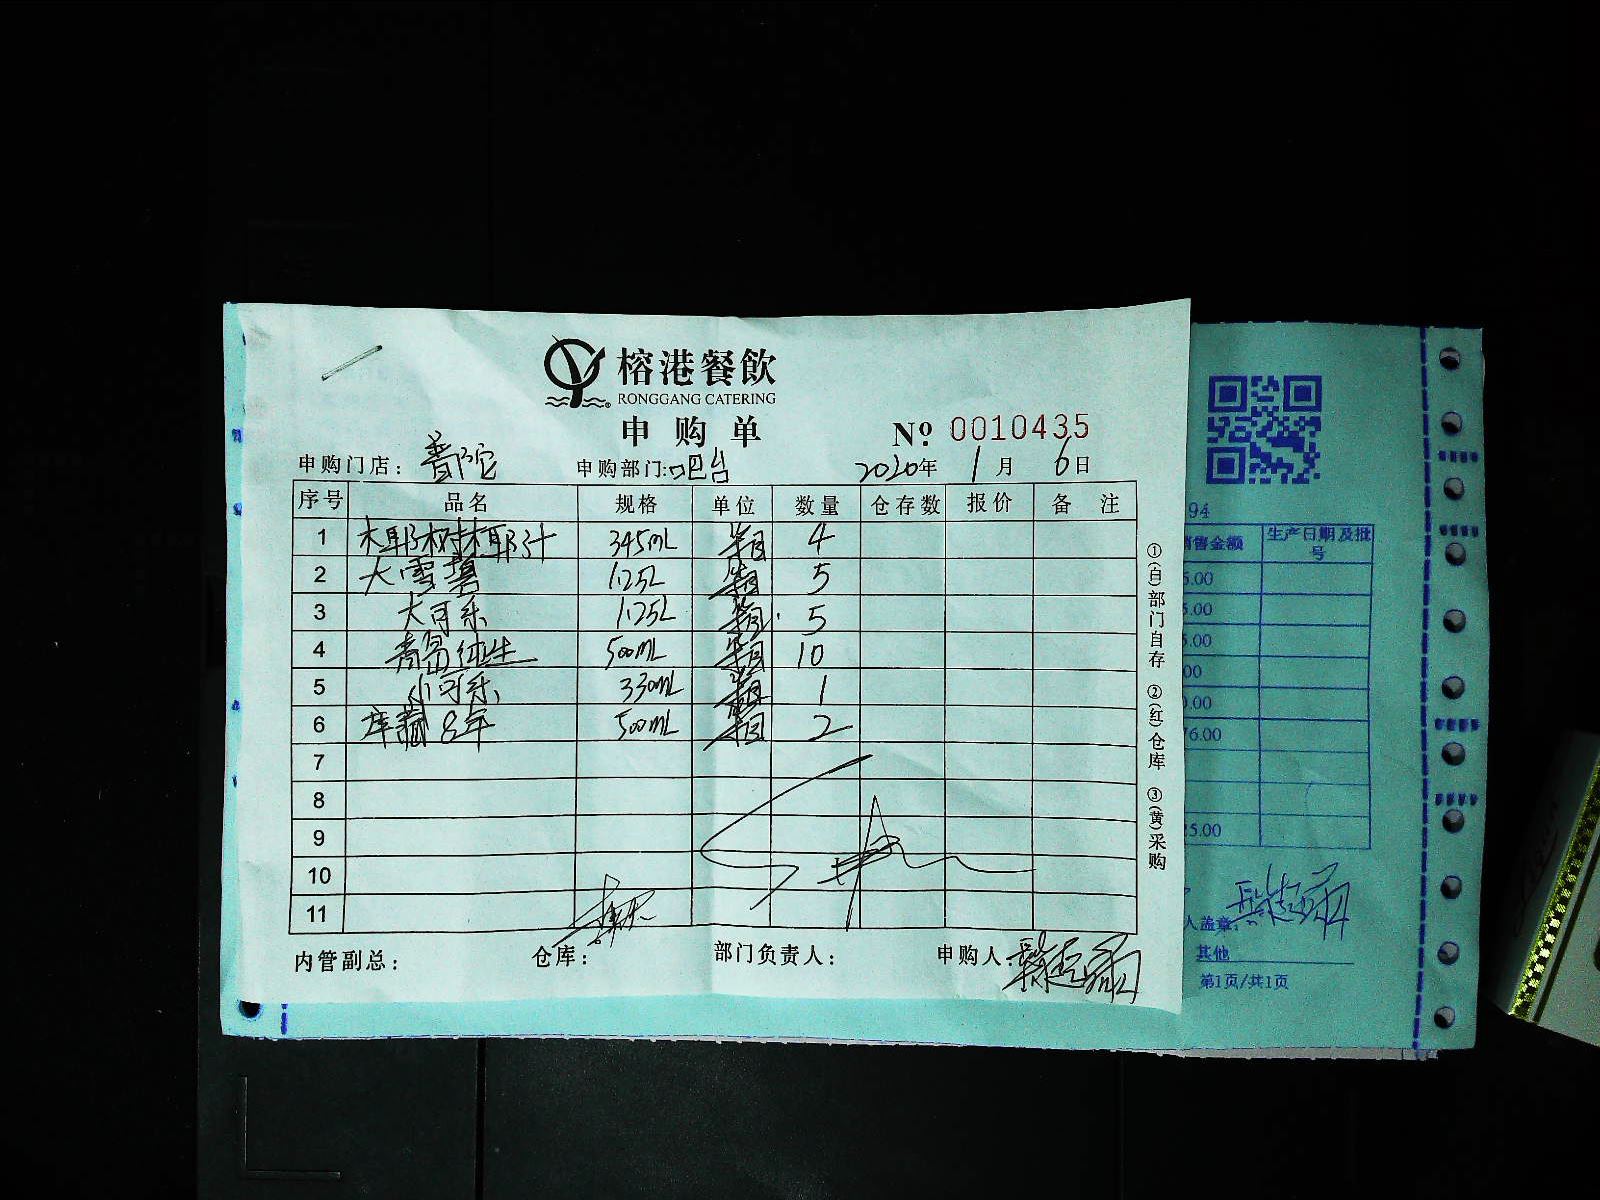 榕港餐飲
RONGGANG CATERING
申购单
№ 0010435
申购门店：普陀 申购部门：吧台 2020年1月6日
序号 品名 规格 单位 数量 仓存数 报价 备注
1 椰树椰汁 345mL 箱 4
2 大雪碧 1.25L 箱 5
3 大可乐 1.25L 箱 5
4 青岛纯生 500mL 箱 10
5 小可乐 330mL 箱 1
6 库藏8年 500mL 箱 2
7
8
9
10
11
内管副总： 仓库： 部门负责人： 申购人：
①(白)部门自存 ②(红)仓库 ③(黄)采购
94
售金额 生产日期及批号
5.00
5.00
5.00
00
0.00
76.00
25.00
人盖章：
其他
第1页/共1页